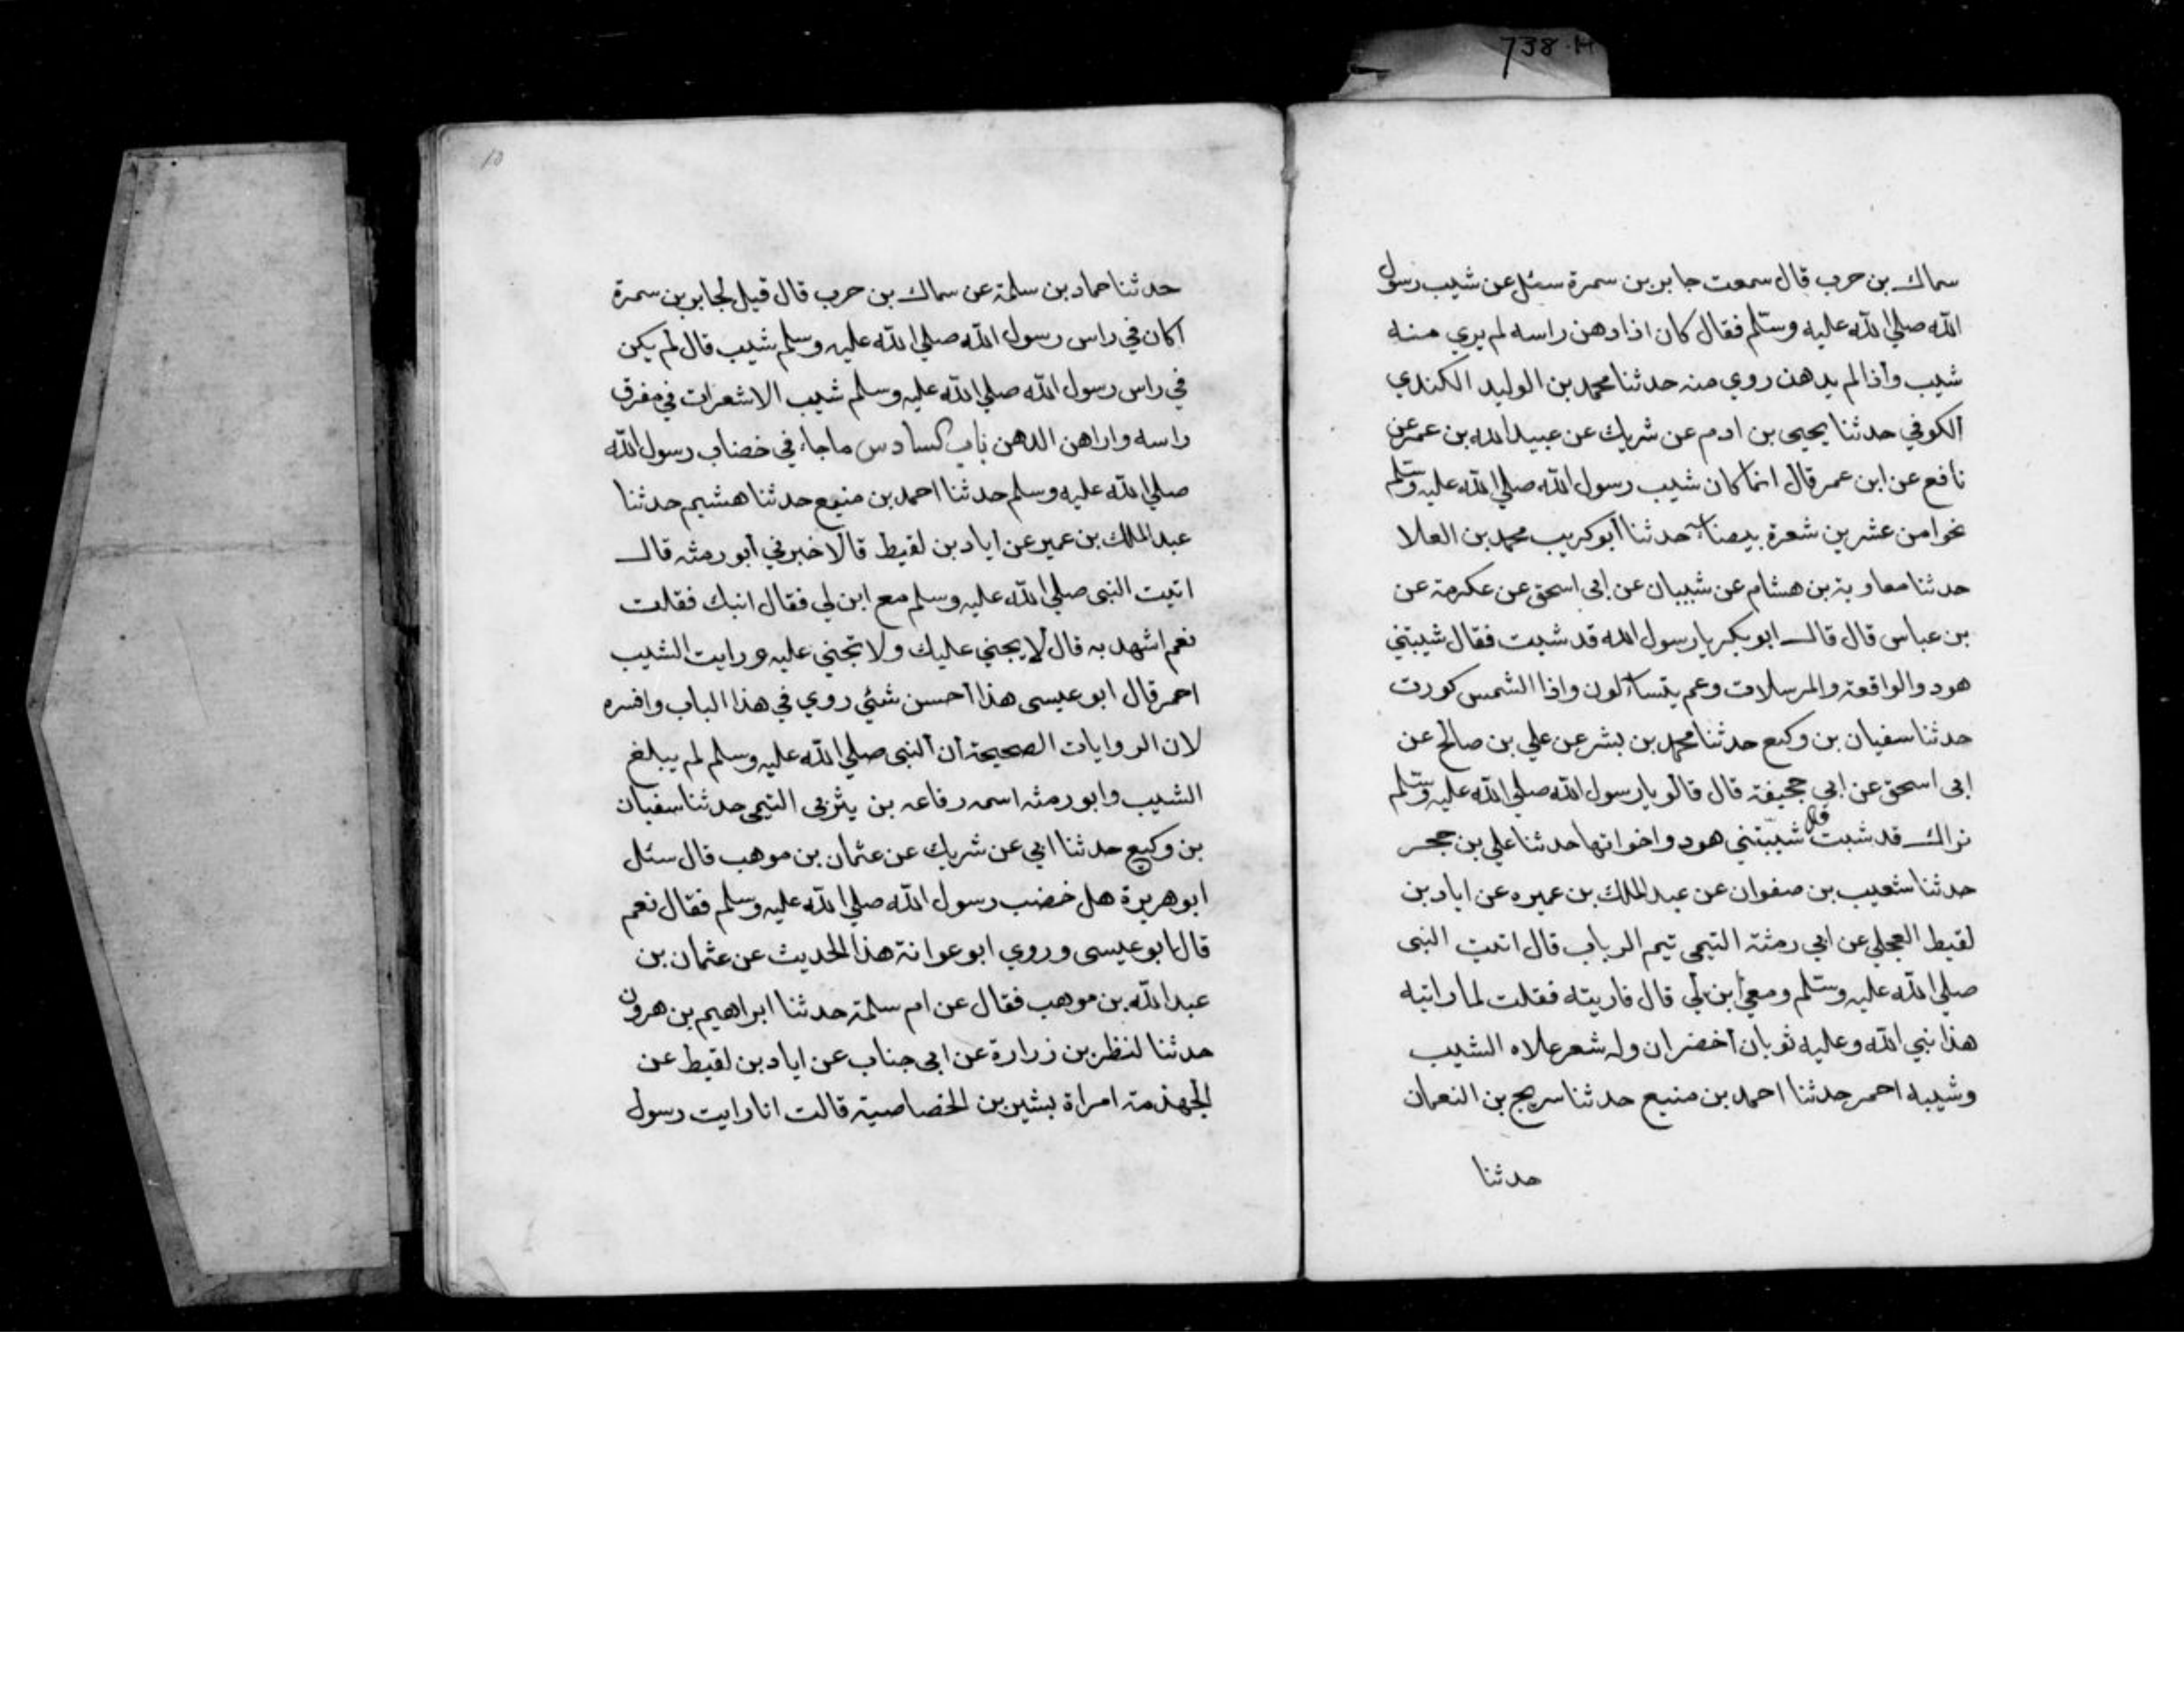 738·H
سماك بن حرب قال سمعت جابر بن سمرة سئل عن شيب رسول
الله صلي الله عليه وسلم فقال كان اذا دهن راسه لم يري منه
شيب وأذا لم يدهن روي منه حدثنا محمد بن الوليد الكندي
الكوفي حدثنا يحيى بن ادم عن شريك عن عبيد الله بن عمر عن
نافع عن ابن عمر قال انما كان شيب رسول الله صلي الله عليه وسلم
نحوا من عشرين شعرة بيضاء حدثنا أبو كريب محمد بن العلا
حدثنا معاوية بن هشام عن شيبان عن ابى اسحق عن عكرمة عن
بن عباس قال قال ابو بكر يا رسول الله قد شبت فقال شيبتني
هود والواقعة والمرسلات وعم يتساءلون واذا الشمس كورت
حدثنا سفيان بن وكيع حدثنا محمد بن بشر عن علي بن صالح عن
ابى اسحق عن ابي جحيفة قال قالو يا رسول الله صلي الله عليه وسلم
نراك قد شبت قال شيبتني هود واخواتها حدثنا علي بن حجر
حدثنا شعيب بن صفوان عن عبد الملك بن عميره عن اياد بن
لقيط العجلي عن ابي رمثة التيمى تيم الرباب قال اتيت النبى
صلي الله عليه وسلم ومعي أبن لي قال فاريته فقلت لما رايته
هذا نبي الله وعليه ثوبان أخضران وله شعر علاه الشيب
وشيبه احمر حدثنا احمد بن منيع حدثنا سريج بن النعمان
حدثنا
10
حدثنا حماد بن سلمة عن سماك بن حرب قال قيل لجابر بن سمرة
أكان في راس رسول الله صلي الله عليه وسلم شيب قال لم يكن
في راس رسول الله صلي الله عليه وسلم شيب الا شعرات في مفرق
راسه واراهن الدهن باب السادس ما جاء في خضاب رسول الله
صلي الله عليه وسلم حدثنا احمد بن منيع حدثنا هشيم حدثنا
عبد الملك بن عمير عن اياد بن لقيط قال اخبرني أبو رمثه قال
اتيت النبى صلي الله عليه وسلم مع ابن لي فقال ابنك فقلت
نعم اشهد به قال لا يجني عليك ولا تجني عليه ورايت الشيب
احمر قال ابو عيسى هذا أحسن شئي روي في هذا الباب وافسره
لان الروايات الصحيحة أن النبى صلي الله عليه وسلم لم يبلغ
الشيب وابو رمثه اسمه رفاعه بن يثربى التيمى حدثنا سفيان
بن وكيع حدثنا ابي عن شريك عن عثمان بن موهب قال سئل
ابو هريرة هل خضب رسول الله صلي الله عليه وسلم فقال نعم
قال ابو عيسى وروي ابو عوانة هذا الحديث عن عثمان بن
عبد الله بن موهب فقال عن ام سلمة حدثنا ابراهيم بن هرون
حدثنا لنظر بن زرارة عن ابى جناب عن اياد بن لقيط عن
الجهذمة امراة بشير بن الخصاصية قالت انا رايت رسول